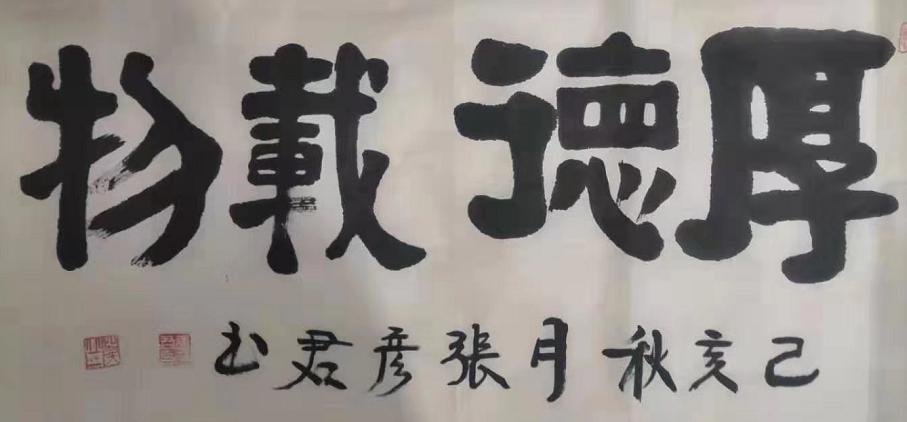 厚德載物
己亥秋月張彦君书